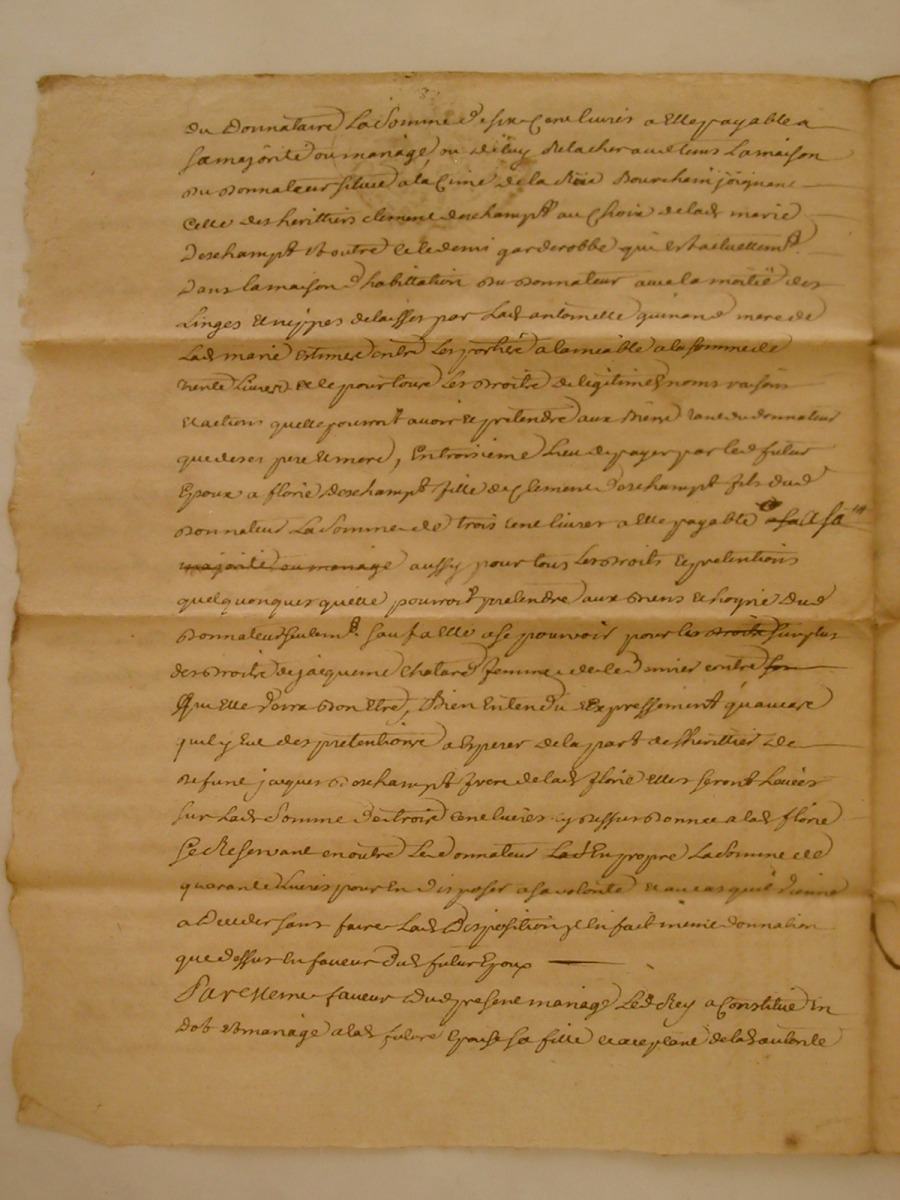 du Donnataire La Somme de six Cent livres a Elle payable a
sa majorité ou mariage ou de luy relacher aud temps La maison
du donnateur située a la Cime de la Rüe Bourchani joignant
Celle des heritiers clement deschampt au Choix de lad marie
Deschampt Et outre ce le demi garderobbe qui est actuellemt
Dans la maison d'habittation du donnateur avec la moitié des
Linges Et nippes delaissés par Lad antoinette quinand mere de
Lad marie estimés entre Les parties a lamiable a la somme de
trente Livres Et ce pour tous Les droits de légitime noms raisons
et actions quelle pourroit avoir et prétendre aux Biens tant du donnateur
que de ses pere et mere, En troisieme Lieu de payer par led futur
Epoux a florie Deschampt fille de Clement Deschampt fils dud
Donnateur La Somme de trois Cent livres a Elle payable a sa
majorité ou mariage aussy pour tous Les droits et pretentions
quelquonques quelle pourroit pretendre aux biens et hoyrie Dud
Donnateur seulemt sauf a Elle a se pourvoir pour les droits surplus
des droits de jacqueme Chatard femme de ce dernier contre
Qui Elle verra bon Etre, Bien Entendu Expressement qu'au cas
quil y Eut des pretentions a Esperer de la part de Lherittier de
defunt jacques Deschampt frere de lad florie Elles seront Levées
sur Lad Somme de trois Cent livres cy dessus donnée a lad florie
Se Reservant en outre Led Donnateur En propre La Somme de
quarante Livres pour En disposer a sa volonté et au cas quil vienne
a Deceder sans faire Lad Disposition il En fait meme donnation
que dessus En faveur Dud futur Epoux
Par Meme faveur Dud present mariage Led Rey a Constitué En
Dot Et mariage a lad future Epouse sa fille et acceptant de lad autorité